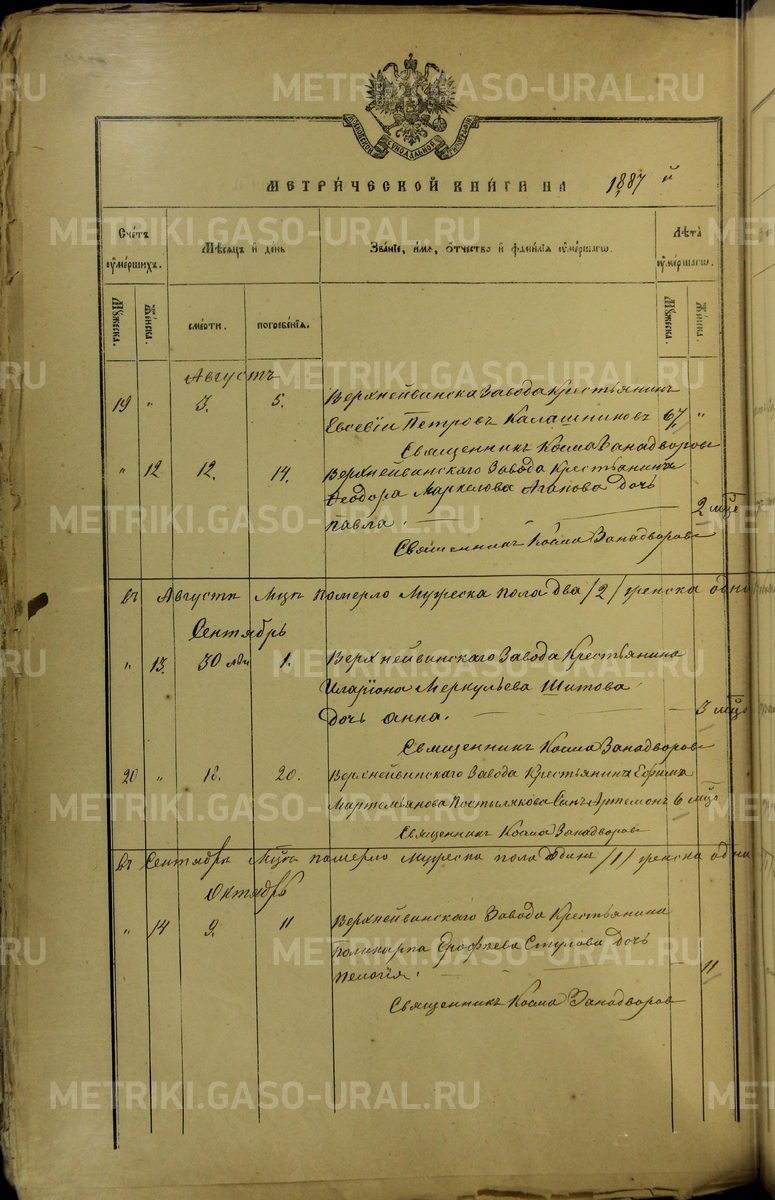 МОСКОВСКОЙ СѴНОДАЛЬНОЙ ТИПОГРАФІИ
МЕТРИ́ЧЕСКОЙ КНИ́ГИ НА 1887 й
Сче́тъ ᲂу҆ме́ршихъ.
Мѣ́сяцъ и҆ день
Зва́нїе, и҆́мя, ѻ҆́тчество и҆ фами́лїѧ ᲂу҆ме́ршагѡ.
Лѣ́та ᲂу҆ме́ршагѡ.
Мꙋ́жеска.
Же́нска.
сме́рти.
погребе́нїѧ.
Мꙋ́жеска.
Же́нска.
Августъ
19 " 3. 5. Верхнейвинска Завода Крестьянинъ
Евсевiи Петровъ Калашниковъ 67, "
Священникъ Косма Занадворовъ
" 12 12. 14. Верхнейвинскаго Завода Крестьянина
Ѳеодора Маркелова Агапова дочь
павла. 2 мцѣ
Священникъ Косма Занадворовъ
въ Августѣ Мцѣ померло Мужеска пола два /2/ женска одна
Сентябрь
" 13. 30 1. Верхнейвинскаго Завода Крестьянина
Иларiона Меркульева Шитова
Дочь анна. 3 мцѣ
Священникъ Косма Занадворовъ
20 " 18. 20. Верхнейвинскаго Завода Крестьянина Ефима
Мартемьянова Постылякова Сынъ Артемонъ 6 мцѣ
Священникъ Косма Занадворовъ
въ Сентябрѣ Мцѣ померло Мужеска пола одинъ /1/ женска одна
Октябрь
" 14 9. 11 Верхнейвинскаго Завода Крестьянина
Поликарпа Ерофѣева Стулова Дочь
Пелогiя. 11
Священникъ Косма Занадворовъ
METRIKI.GASO-URAL.RU